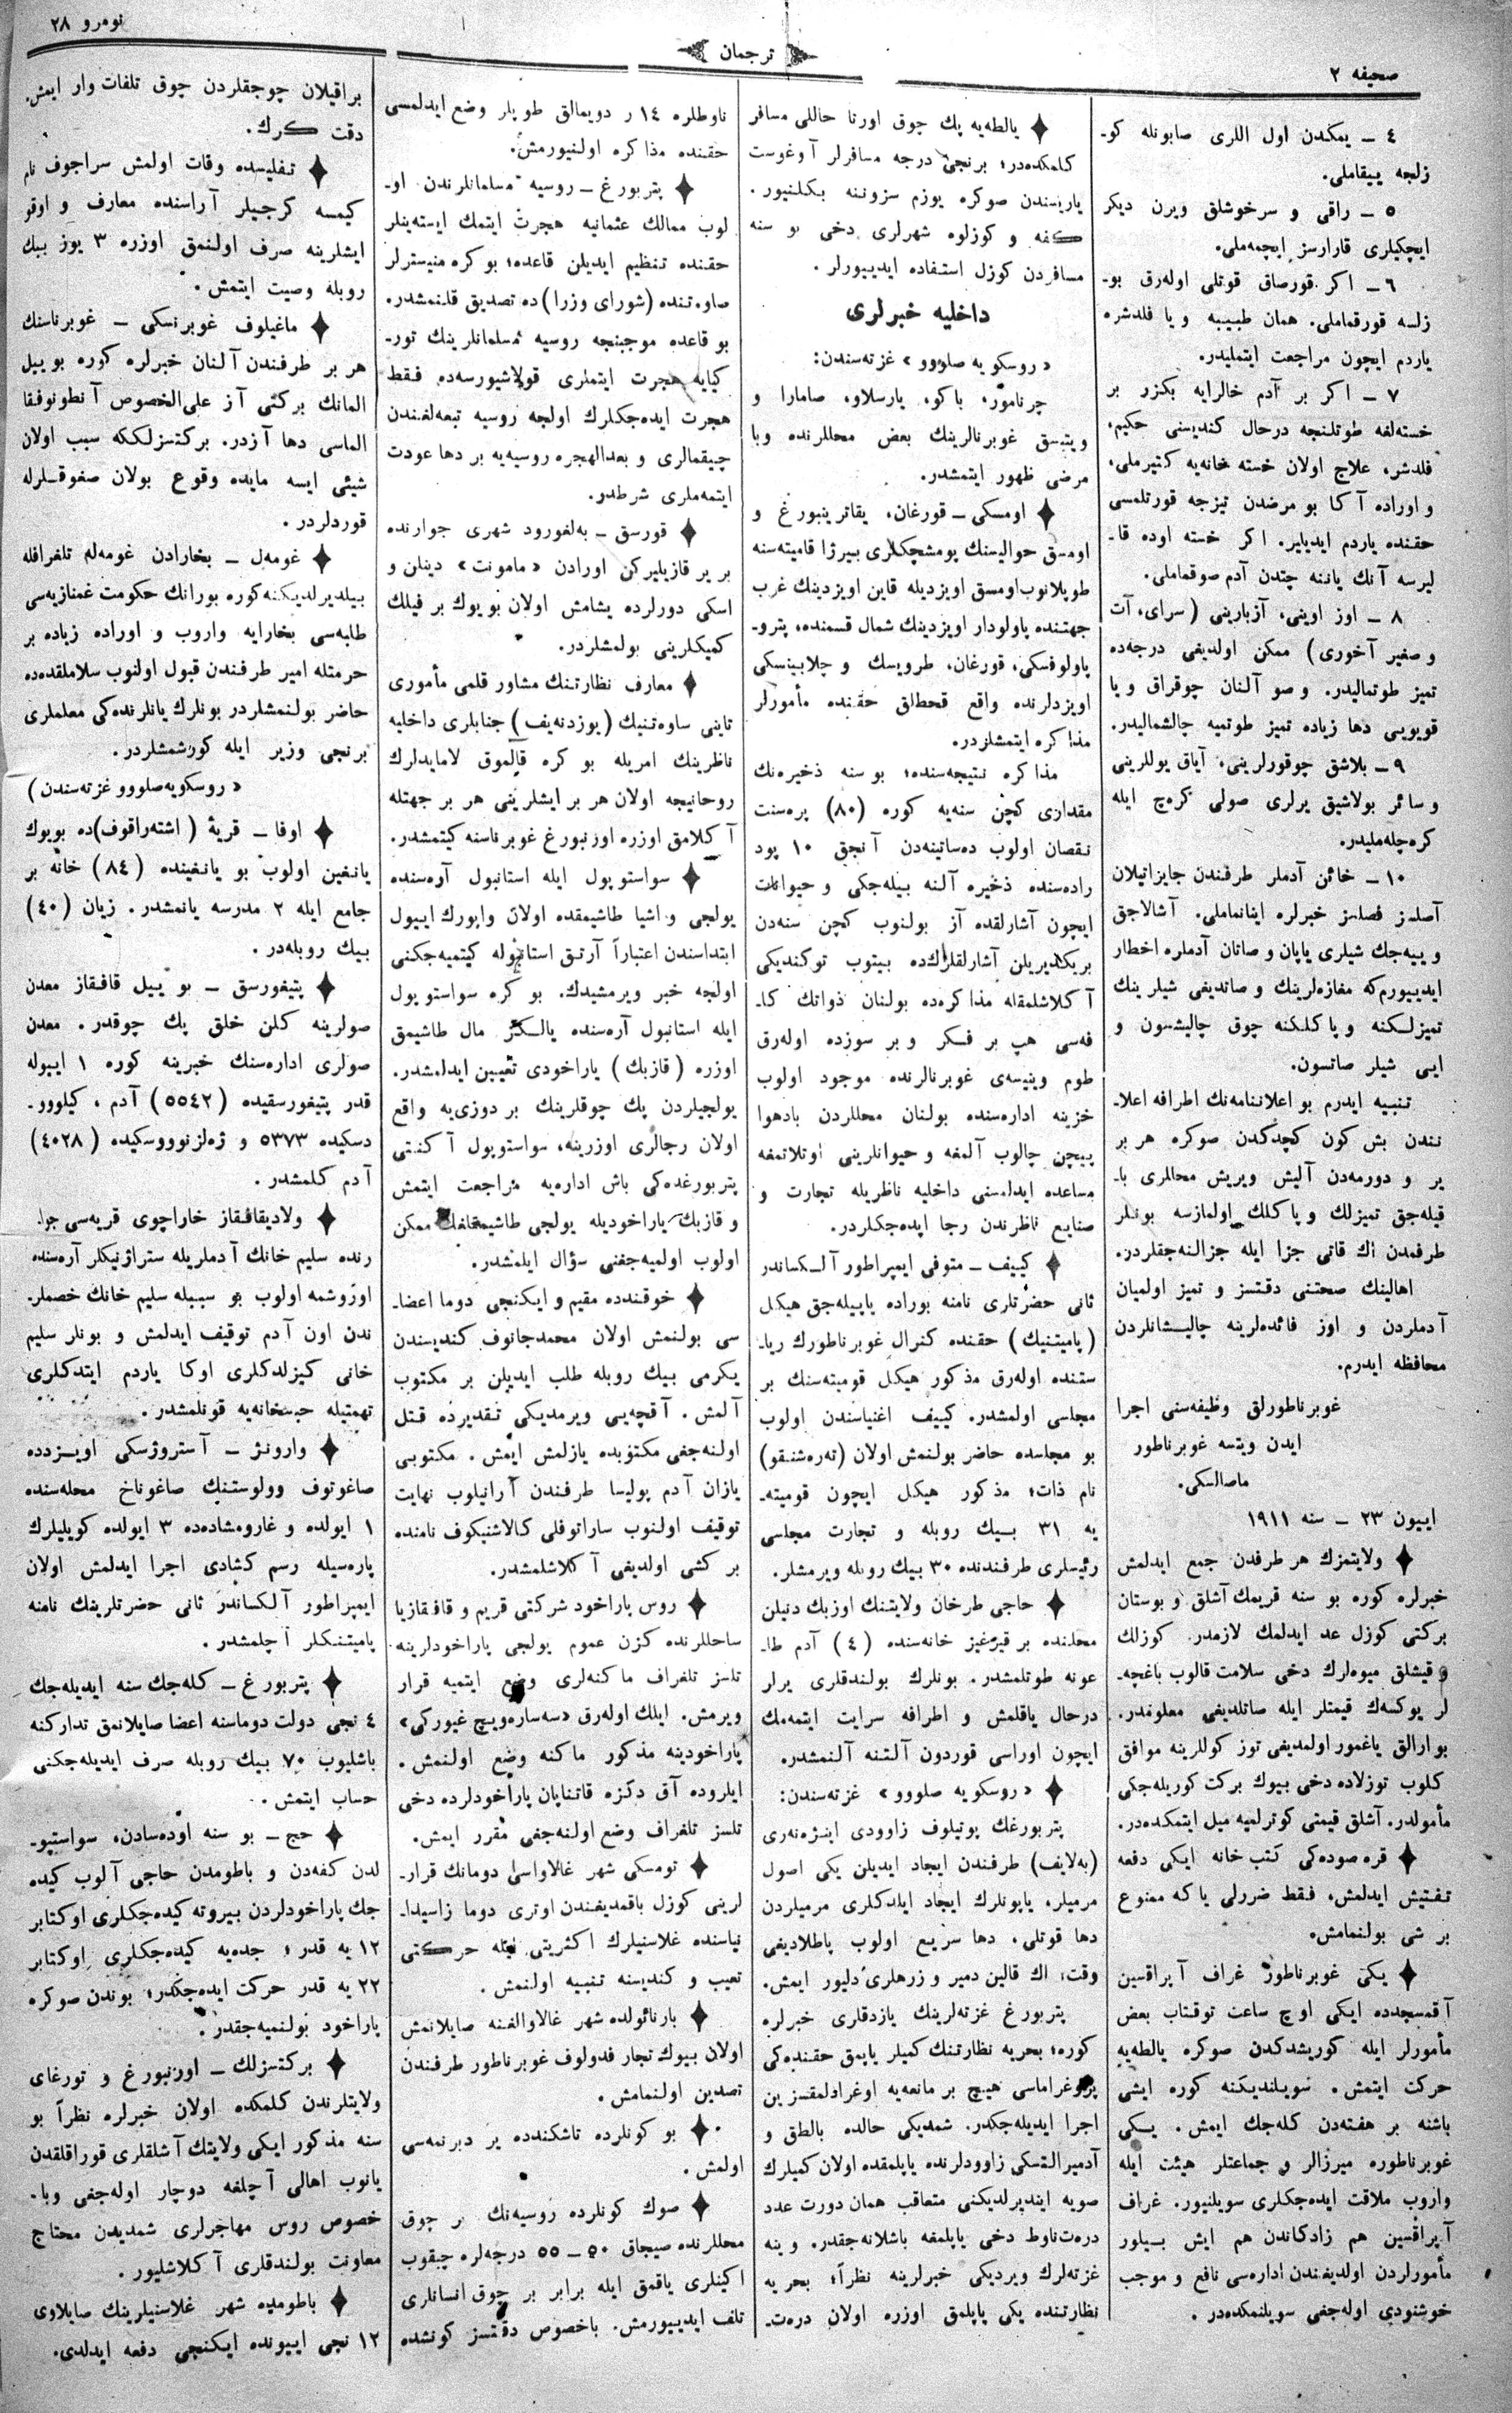 صحیفه ۲
ترجمان
نومرو ۲۸
٤ ـ یمكدن اول اللری صابونله كو-
زلجه ییقاملی.
٥ ـ راقی و سرخوشلق ویرن دیكر
ایچكیلری قارارسز ایچمه‌ملی.
٦ ـ اكر قورصاق قوتلی اوله‌رق بو-
زلسه قورقماملی. همان طبیبه و یا فلدشره
یاردم ایچون مراجعت ایتملیدر.
۷ ـ اكر بر آدم خالرایه بكزر بر
خسته‌لغه طوتلنجه درحال كندیسنی حكیم،
فلدشر، علاج اولان خسته خانه‌یه كتیرملی،
و اوراده آكا بو مرضدن تیزجه قورتلمسی
حقنده یاردم ایدیلیر. اكر خسته اوده قا-
لیرسه آنك یاننه چتدن آدم صوقماملی.
۸ ـ اوز اوینی، آزبارینی (سرای، آت
و صغیر آخوری) ممكن اولدیغی درجه‌ده
تمیز طوتمالیدر. و صو آلنان چوقراق و یا
قویویی دها زیاده تمیز طوتمیه چالشمالیدر.
۹ ـ بلاشق چوقورلرینی، آیاق یوللرینی
و سائر بولاشیق یرلری صولی كره‌چ ایله
كره‌چله‌ملیدر.
۱۰ ـ خائن آدملر طرفندن جایزاتیلان
آصلسز فصلسز خبرلره اینانماملی. آشالاجق
و ییه‌جك شیلری یاپان و صاتان آدملره اخطار
ایدییورم‌كه مغازه‌لرینك و صاتدیغی شیلرینك
تمیزلكنه و پاكلكنه چوق چالیشسون و
ایی شیلر صاتسون.
تنبیه ایدرم بو اعلاننامه‌نك اطرافه اعلا-
نندن بش كون كچدكدن صوكره هر بر
یر و دورمه‌دن آلیش ویریش محللری با-
قیله‌جق تمیزلك و پاكلك اولمازسه بونلر
طرفمدن اك قاتی جزا ایله جزالنه‌جقلردر.
اهالینك صحتنی دقتسز و تمیز اولمیان
آدملردن و اوز فائده‌لرینه چالیشانلردن
محافظه ایدرم.
غوبرناطورلق وظیفه‌سنی اجرا
ایدن ویتسه غوبرناطور
ماصالسكی.
اییون ۲۳ ـ سنه ۱۹۱۱
ولایتمزك هر طرفدن جمع ایدلمش
خبرلره كوره بو سنه قریمك آشلق و بوستان
بركتی كوزل عد ایدلمك لازمدر. كوزلك
و قیشلق میوه‌لرك دخی سلامت قالوب باغچه-
لر یوكسه‌ك قیمتلر ایله صاتلدیغی معلوندر.
بو ارالق یاغمور اولمدیغی توز كوللرینه موافق
كلوب توزلاده دخی بیوك بركت كوریله‌جكی
مأمولدر. آشلق قیمتی كوترلمیه میل ایتمكده‌در.
قره صوده‌كی كتب خانه ایكی دفعه
تفتیش ایدلمش، فقط ضررلی یا كه ممنوع
بر شی بولنمامش.
یكی غوبرناطور غراف آپراقسین
آقمسجدده ایكی اوچ ساعت توقتاب بعض
مأمورلر ایله كوریشدكدن صوكره یالطه‌یه
حركت ایتمش. سویلندیكنه كوره ایشی
باشنه بر هفته‌دن كله‌جك ایمش. یكی
غوبرناطوره میرزالر و جماعتلر هیئت ایله
واروب ملاقت ایده‌جكلری سویلنیور. غراف
آپراقسین هم زادكاندن هم ایش بیلور
مأمورلردن اولدیغندن اداره‌سی نافع و موجب
خوشنودی اوله‌جغی سویلنمكده‌در.
یالطه‌یه پك چوق اورتا حاللی مسافر
كلمكده‌در؛ برنجی درجه مسافرلر آوغوست
یاریسندن صوكره یوزم سزوننه بكلنیور.
كفه و كوزلوه شهرلری دخی بو سنه
مسافردن كوزل استفاده ایدییورلر.
داخلیه خبرلری
«روسكویه صلووو» غزته‌سندن:
چرنامور، باكو، یارسلاو، صامارا و
ویتبسق غوبرنالرینك بعض محللرنده وبا
مرضی ظهور ایتمشدر.
اومسكی ـ قورغان، یقاترینبورغ و
اومسق حوالیسنك یومشچكلری بیرژا قامیته‌سنه
طوپلانوب اومسق اویزدیله قاین اویزدینك غرب
جهتنده پاولودار اویزدینك شمال قسمنده، پترو-
پاولوفسكی، قورغان، طرویسك و چلابینسكی
اویزدلرنده واقع قحطلق حقنده مأمورلر
مذاكره ایتمشلزدر.
مذاكره نتیجه‌سنده؛ بو سنه ذخیره‌نك
مقداری كچن سنه‌یه كوره (۸۰) پره‌سنت
نقصان اولوب ده‌ساتینه‌دن آنجق ۱۰ پود
راده‌سنده ذخیره آلنه بیله‌جكی و حیوانات
ایچون آشارلقده آز بولنوب كچن سنه‌دن
بریكدیریلن آشارلقلرك‌ده بیتوب توكندیكی
آكلاشلمقله مذاكره‌ده بولنان ذواتك كا-
فه‌سی هپ بر فكر و بر سوزده اوله‌رق
طوم وینیسه‌ی غوبرنالرنده موجود اولوب
خزینه اداره‌سنده بولنان محللردن بادهوا
پیچن چالوب آلمغه و حیوانلرینی اوتلاتمغه
مساعده ایدلمسنی داخلیه ناظریله تجارت و
صنایع ناظرندن رجا ایده‌جكلردر.
كییف ـ متوفی ایمپراطور آلكساندر
ثانی حضرتلری نامنه بوراده یاپیله‌جق هیكل
(پامیتنیك) حقنده كنرال غوبرناطورك ریا-
ستنده اوله‌رق مذكور هیكل قومیته‌سنك بر
مجلسی اولمشدر. كییف اغنیاسندن اولوب
بو مجلسده حاضر بولنمش اولان (ته‌ره‌شنقو)
نام ذات؛ مذكور هیكل ایچون قومیته-
یه ۳۱ بیك روبله و تجارت مجلسی
رئیسلری طرفندنده ۳۰ بیك روبله ویرمشلر.
حاجی طرخان ولایتنك اوزبك دنیلن
محلنده بر قیرغیز خانه‌سنده (٤) آدم طا-
عونه طوتلمشدر. بونلرك بولندقلری یرلر
درحال یاقلمش و اطرافه سرایت ایتمه‌مك
ایچون اوراسی قوردون آلتنه آلنمشدر.
«روسكویه صلووو» غزته‌سندن:
پتربورغك پوتیلوف زاوودی اینژه‌نه‌ری
(به‌لایف) طرفندن ایجاد ایدیلن یكی اصول
مرمیلر، یاپونلرك ایجاد ایلدكلری مرمیلردن
دها قوتلی، دها سریع اولوب پاطلادیغی
وقت، اك قالین دمیر و زرهلری دلیور ایمش.
پتربورغ غزته‌لرینك یازدقلری خبرلره
كوره؛ بحریه نظارتنك كمیلر یاپمق حقنده‌كی
پروغراماسی هیچ بر مانعه‌یه اوغرادلمقسزین
اجرا ایدیله‌جكدر. شمدیكی حالده بالطق و
آدمیرالتسكی زاوودلرنده یاپلمقده اولان كمیلرك
صویه ایندیرلدیكنی متعاقب همان دورت عدد
دره‌تناوط دخی یاپلمغه باشلانه‌جقدر. و ینه
غزته‌لرك ویردیكی خبرلرینه نظراً؛ بحریه
نظارتنده یكی یاپلمق اوزره اولان دره‌ت-
ناوطلره ۱٤ ر دویمالق طوپلر وضع ایدلمسی
حقنده مذاكره اولنیورمش.
پتربورغ ـ روسیه مسلمانلرندن او-
لوب ممالك عثمانیه هجرت ایتمك ایسته‌ینلر
حقنده تنظیم ایدیلن قاعده؛ بو كره منیسترلر
صاوه‌تنده (شورای وزرا) ده تصدیق قلنمشدر.
بو قاعده موجبنجه روسیه مسلمانلرینك تور-
كیایه هجرت ایتملری قولاشیورسه‌ده فقط
هجرت ایده‌جكلرك اولجه روسیه تبعه‌لغندن
چیقمالری و بعدالهجره روسیه‌یه بر دها عودت
ایتمه‌ملری شرطدر.
قورسق ـ به‌لغورود شهری جوارنده
بر یر قازیلیركن اورادن «مامونت» دینلن و
اسكی دورلرده یشامش اولان بویوك بر فیلك
كمیكلرینی بولمشلردر.
معارف نظارتنك مشاور قلمی مأموری
تاینی ساوه‌تنیك (یوزدنه‌یف) جنابلری داخلیه
ناظرینك امریله بو كره قالموق لامایدلرك
روحانیجه اولان هر بر ایشلرینی هر بر جهتله
آكلامق اوزره اورنبورغ غوبرناسنه كیتمشدر.
سواستوپول ایله استانبول آره‌سنده
یولجی و اشیا طاشیمقده اولان واپورك اییول
ابتداسندن اعتباراً آرتق استانبوله كیتمیه‌جكنی
اولجه خبر ویرمشیدك. بو كره سواستوپول
ایله استانبول آره‌سنده یالكز مال طاشیمق
اوزره (قازبك) پاراخودی تعیین ایدلمشدر.
یولجیلردن پك چوقلرینك بر دوزی‌یه واقع
اولان رجالری اوزرینه، سواستوپول آكنتی
پتربورغده‌كی باش اداره‌یه مراجعت ایتمش
و قازبك پاراخودیله یولجی طاشیمقلغك ممكن
اولوب اولمیه‌جغنی سؤال ایلمشدر.
خوقندده مقیم و ایكنجی دوما اعضا-
سی بولنمش اولان محمدجانوف كندیسندن
یكرمی بیك روبله طلب ایدیلن بر مكتوب
آلمش. آقچه‌یی ویرمدیكی تقدیرده قتل
اولنه‌جغی مكتوبده یازلمش ایمش. مكتوبی
یازان آدم پولیسا طرفندن آرانیلوب نهایت
توقیف اولنوب ساراتوفلی كالاشنیكوف نامنده
بر كشی اولدیغی آكلاشلمشدر.
روس پاراخود شركتی قریم و قافقازیا
ساحللرنده كزن عموم یولجی پاراخودلرینه
تلسز تلغراف ماكنه‌لری وضع ایتمیه قرار
ویرمش. ایلك اوله‌رق «سه‌ساره‌ویچ غیورکی»
پاراخودینه مذكور ماكنه وضع اولنمش.
ایلروده آق دكزه قاتنایان پاراخودلرده دخی
تلسز تلغراف وضع اولنه‌جغی مقرر ایمش.
تومسكی شهر غالاواسی دومانك قرار-
لرینی كوزل باقمدیغندن اوتری دوما زاسیدا-
نیاسنده غلاسنیلرك اكثریتی ایله حركتی
تعیب و كندیسنه تنبیه اولنمش.
بارنائولده شهر غالاوالغنه صایلانمش
اولان بیوك تجار فدولوف غوبرناطور طرفندن
تصدین اولنمامش.
بو كونلرده تاشكندده یر دبرنمه‌سی
اولمش.
صوك كونلرده روسیه‌نك بر چوق
محللرنده صیجاق ٥۰ ـ ٥٥ درجه‌لره چیقوب
اكینلری یاقمق ایله برابر بر چوق انسانلری
تلف ایدییورمش. باخصوص دقتسز كونشده
براقیلان چوجقلردن چوق تلفات وار ایمش.
دقت كرك.
تفلیسده وفات اولمش سراجوف نام
كیمسه كرجیلر آراسنده معارف و اوقو
ایشلرینه صرف اولنمق اوزره ۳ یوز بیك
روبله وصیت ایتمش.
ماغیلوف غوبرنسكی ـ غوبرناسنك
هر بر طرفندن آلنان خبرلره كوره بو ییل
المانك بركتی آز علی‌الخصوص آنطونوفقا
الماسی دها آزدر. بركتسزلككه سبب اولان
شیئی ایسه مایده وقوع بولان صغوقلرله
قوردلردر.
غومه‌ل ـ بخارادن غومه‌له تلغرافله
بیلدیرلدیكنه كوره بورانك حكومت غمنازیه‌سی
طلبه‌سی بخارایه واروب و اوراده زیاده بر
حرمتله امیر طرفندن قبول اولنوب سلاملقده‌ده
حاضر بولنمشلردر بونلرك یانلرنده‌كی معلملری
برنجی وزیر ایله كورشمشلردر.
«روسكویه‌صلووو غزته‌سندن)
اوفا ـ قریهٔ (اشته‌راقوف) ده بویوك
یانغین اولوب بو یانغینده (۸٤) خانه بر
جامع ایله ۲ مدرسه یانمشدر. زیان (٤۰)
بیك روبله‌در.
پتیغورسق ـ بو ییل قافقاز معدن
صولرینه كلن خلق پك چوقدر. معدن
صولری اداره‌سنك خبرینه كوره ۱ اییوله
قدر پتیغورسقیده (٥٥٤۲) آدم، كیلوو-
دسكیده ٥۳۷۳ و ژه‌لزنوووسكیده (٤۰۲۸)
آدم كلمشدر.
ولادیقافقاز خاراچوی قریه‌سی جوا-
رنده سلیم خانك آدملریله ستراژنیكلر آره‌سنده
اوزوشمه اولوب بو سببله سلیم خانك خصملر-
ندن اون آدم توقیف ایدلمش و بونلر سلیم
خانی كیزلدكلری اوكا یاردم ایتدكلری
تهمتیله حبسخانه‌یه قونلمشدر.
وارونژ ـ آستروژسكی اویزدده
صاغوتوف وولوستنك صاغوناخ محله‌سنده
۱ ایولده و غارومشاده‌ده ۳ ایولده كویلیلرك
پاره‌سیله رسم كشادی اجرا ایدلمش اولان
ایمپراطور آلكساندر ثانی حضرتلرینك نامنه
پامیتنكلر آچلمشدر.
پتربورغ ـ كله‌جك سنه ایدیله‌جك
٤ نجی دولت دوماسنه اعضا صایلانمق تداركنه
باشلیوب ۷۰ بیك روبله صرف ایدیله‌جكنی
حساب ایتمش.
حج ـ بو سنه اوده‌سادن، سواستپو-
لدن كفه‌دن و باطومدن حاجی آلوب كیده
جك پاراخودلردن بیروته كیده‌جكلری اوكتابر
۱۲ یه قدر؛ جده‌یه كیده‌جكلری اوكتابر
۲۲ یه قدر حركت ایده‌جكدر؛ بوندن صوكره
پاراخود بولنمیه‌جقدر.
بركتسزلك ـ اورنبورغ و تورغای
ولایتلرندن كلمكده اولان خبرلره نظراً بو
سنه مذكور ایكی ولایتك آشلقلری قوراقلقدن
یانوب اهالی آچلغه دوچار اوله‌جغی وبا-
خصوص روس مهاجرلری شمدیدن محتاج
معاونت بولندقلری آكلاشلیور.
باطومده شهر غلاسنیلرینك صایلاوی
۱۲ نجی اییونده ایكنجی دفعه ایدلدی.